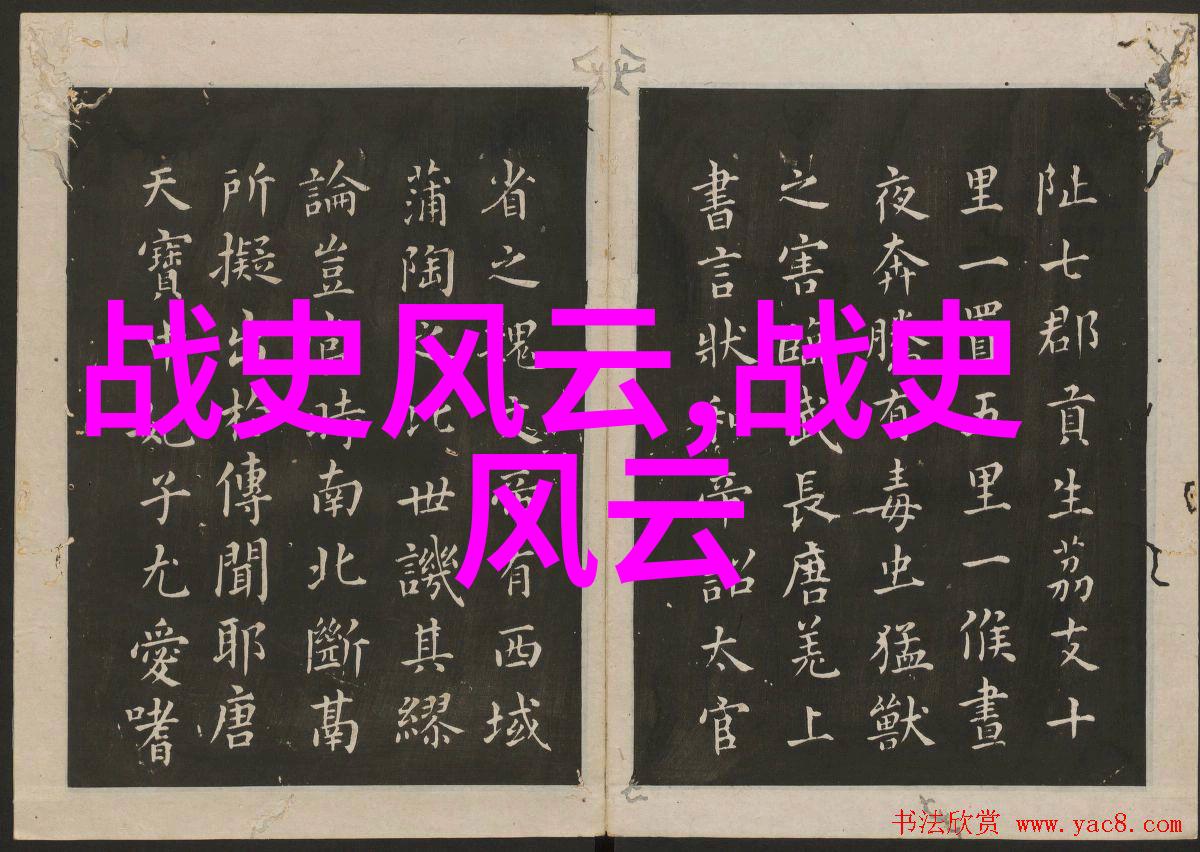 战史风云,战史
风云
阯七郡貢生荔支十
里一置五里一候晝
夜奔騰有毒虫猛獸
之害臨武長唐羌上
書言狀和帝詔太官
省之魏文帝有西域
蒲陶之比世譏其繆
論豈當時南北斷鬲
所擬出於傳聞耶唐
天寶中妃子尤愛嗜
书法欣赏 www.yac8.com